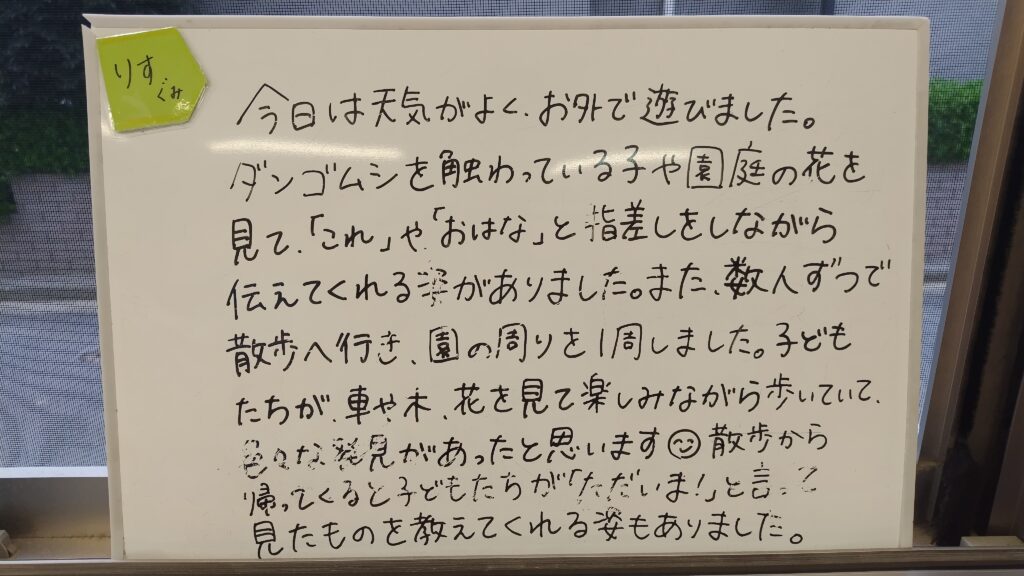 りす
ぐみ
今日は天気がよく、お外で遊びました。
ダンゴムシを触わっている子や園庭の花を
見て、「これ」や「おはな」と指差しをしながら
伝えてくれる姿がありました。また、数人ずつで
散歩へ行き、園の周りを1周しました。子ども
たちが、車や木、花を見て楽しみながら歩いていて、
色々な発見があったと思います😊散歩から
帰ってくると子どもたちが「ただいま!」と言って
見たものを教えてくれる姿もありました。